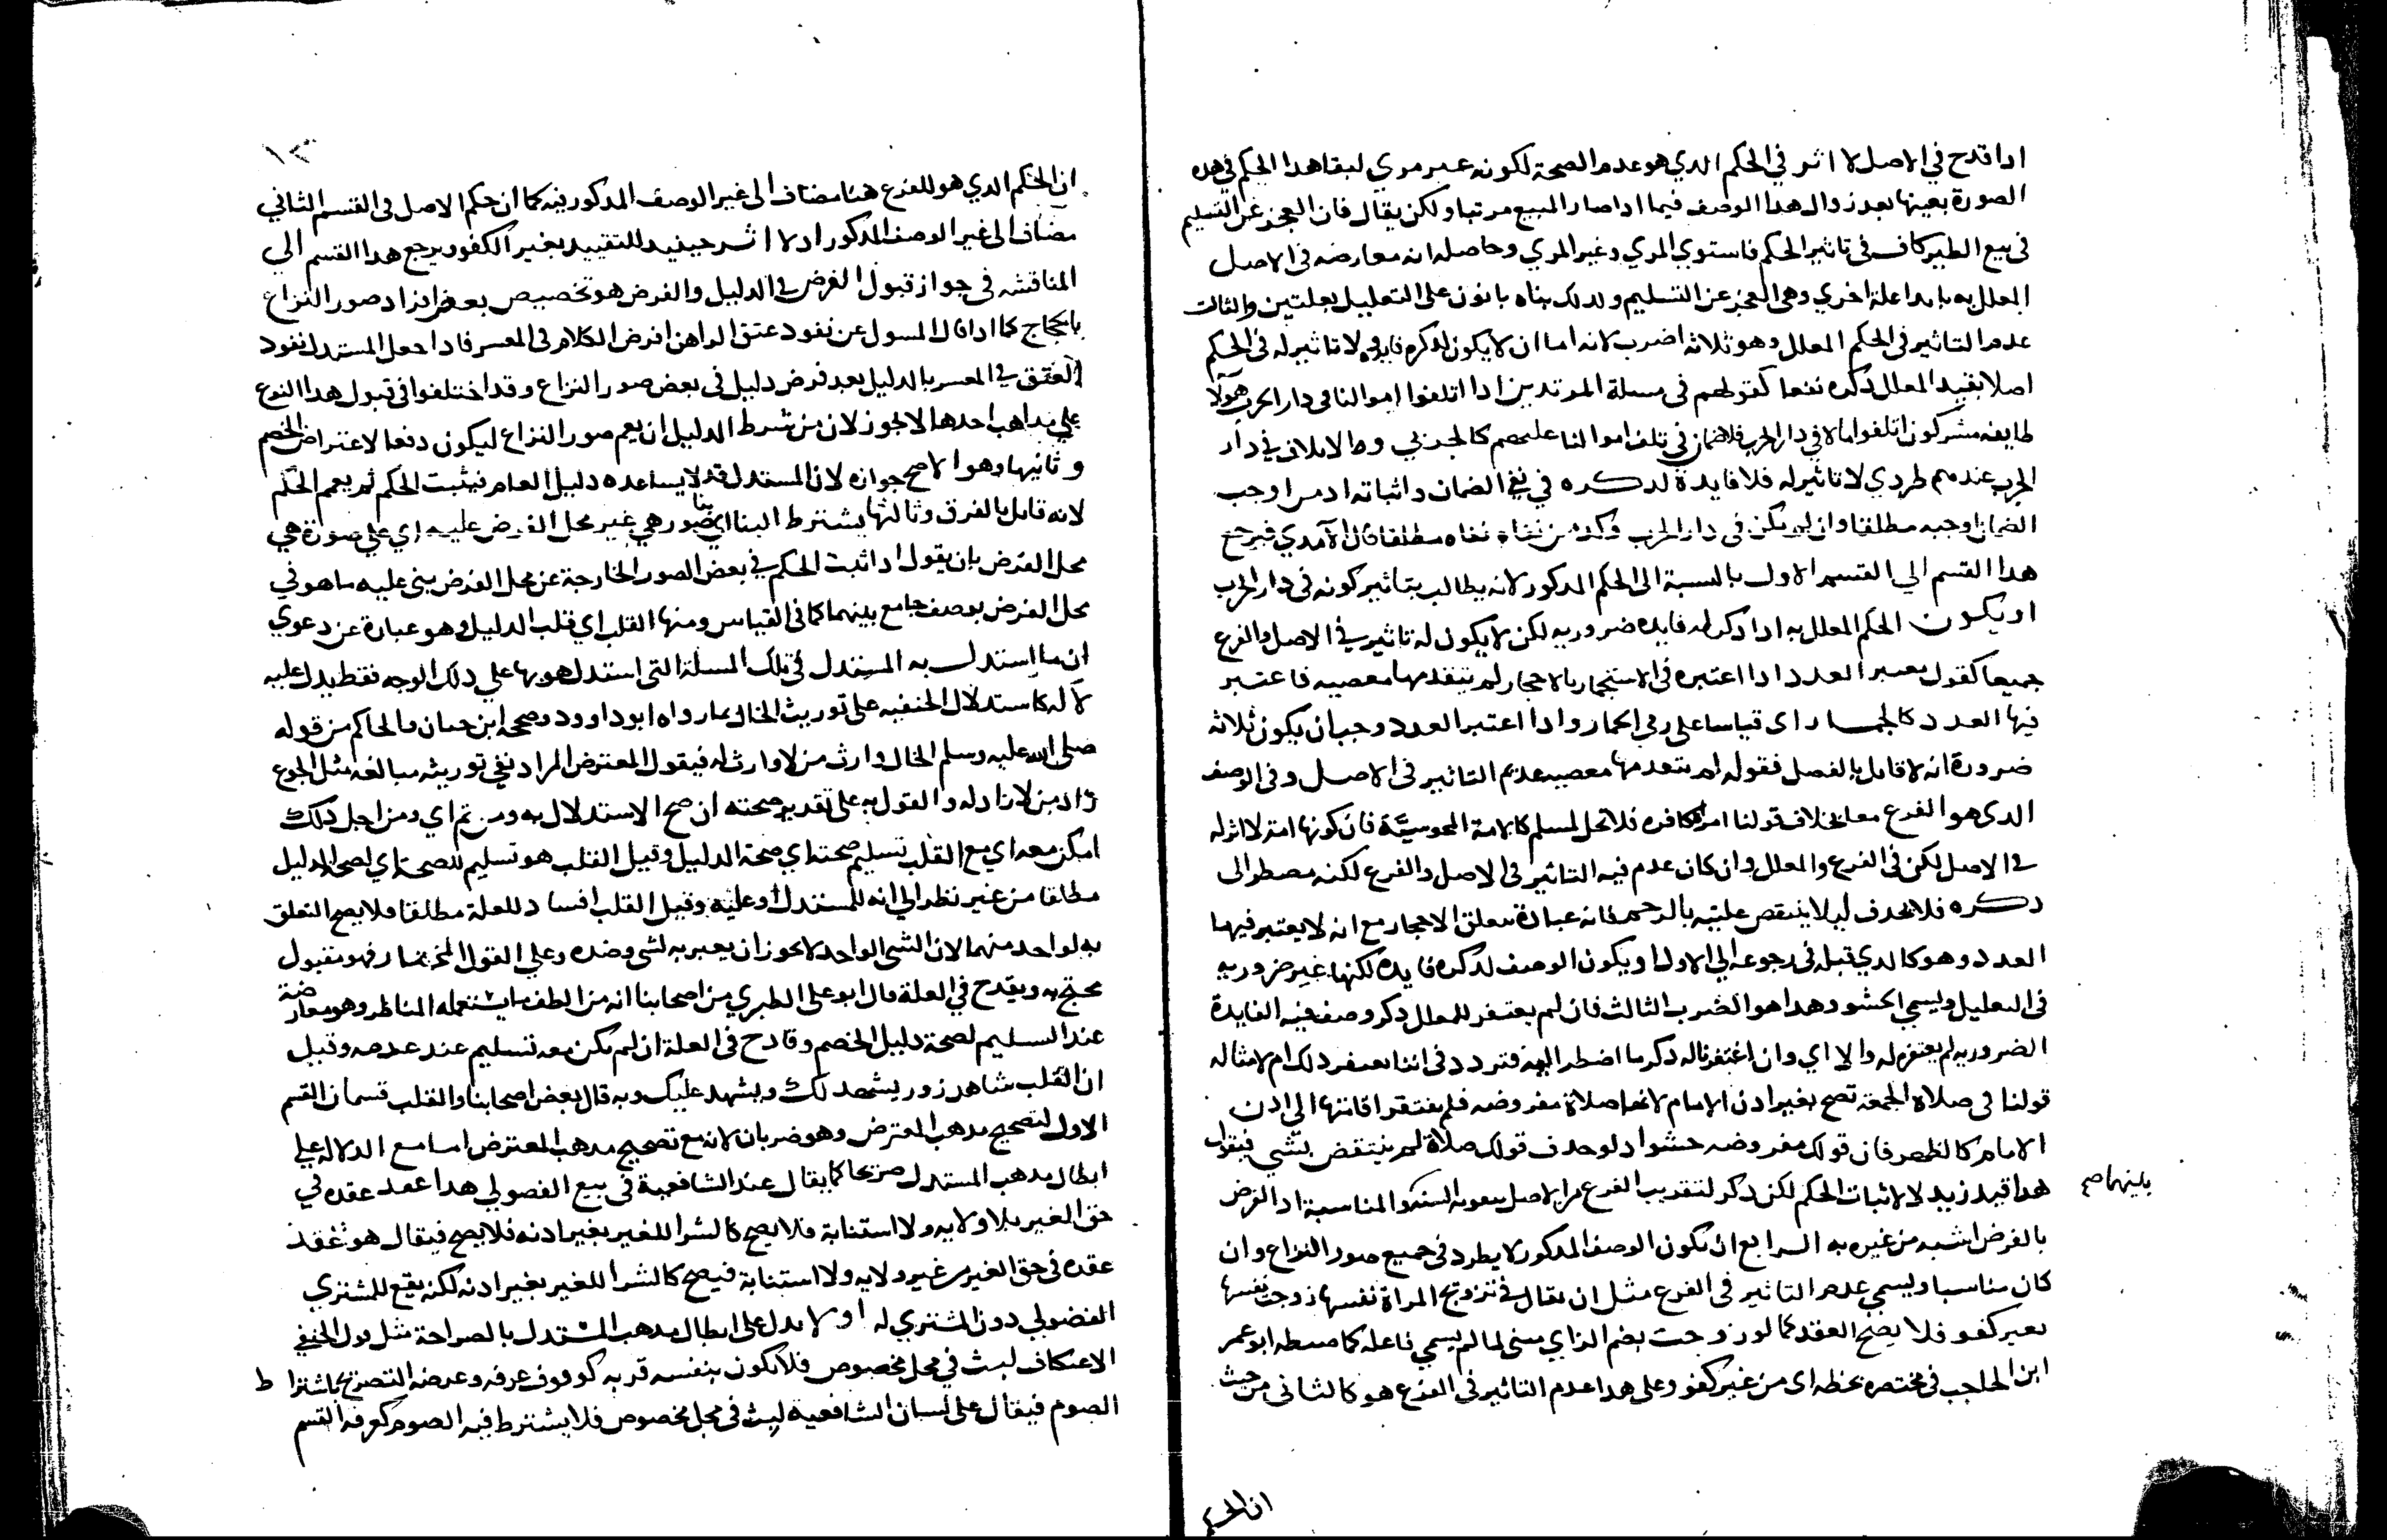 اذا قدح في الاصل لا اثر في الحكم الدي هو عدم الصحة لكونه غير مري لبقا هدا الحكم في هده
الصورة بعينها بعد زوال هدا الوصف فيما ادا صار المبيع مرتيا ولكن يقال فان العجز عن التسليم
في بيع الطير كاف في تاثير الحكم فاستوي المري وغير المري وحاصله انه معارضه في الاصل
المعلل به بابدا علة اخري وهي العجز عن التسليم ولدلك بناه بانون على التعليل بعلتين والثالث
عدم التاثير في الحكم المعلل وهو ثلاثه اضرب لانه اما ان لا يكون لدكره فايدة لا تاثير له في الحكم
اصلا بقيد المعلل دكره نفعا كقولهم في مسلة المرتدين ادا اتلفوا اموالنا في دار الحرب هولا
طايفه مشركون اتلفوا مالا في دار الحرب فلا ضمان في تلف اموالنا عليهم كالحربي ودا الاتلاف في دار
الحرب عندهم طردي لا تاثير له فلا فايدة لدكره في نفي الضمان واثباته اد من اوجب
الضمان اوجبه مطلقا وان لم يكن في دار الحرب وكدا من نفاه نفاه مطلقا قال الآمدي فيرجع
هدا القسم الي القسم الاول بالنسبة الى الحكم المدكور لانه يطالب بتاثير كونه في دار الحرب
او يكون الحكم المعلل به ادا دكر له فايده ضروريه لكن لا يكون له تاثير في الاصل والفرع
جميعا كقول معتبر العدد ادا اعتبره في الاستجمار بالاحجار لم يتقدمها معصيه فاعتبر
فيها العدد كالجمار اى قياسا على رمي الجمار وادا اعتبر العدد وجب ان يكون ثلاثه
ضرورة انه لا قايل بالفصل فقوله لم يتقدمها معصيه عديم التاثير في الاصل وفي الوصف
الدى هو الفرع معا بخلاف قولنا امة كافره فلا تحل لمسلم كالامة المجوسيَّة فان كونها امة لا اثر له
في الاصل لكن في الفرع والمعلل وان كان عدم فيه التاثير في الاصل والفرع لكنه مضطر الى
دكره فلا يحدف ليلا ينتقض عليته بالرجم فانه عبادة تتعلق الاحجار مع انه لا يعتبر فيها
العدد وهو كالدي قبله في رجوعه الي الاول او يكون الوصف لدكره فايده لكنها غير ضروريه
في التعليل ويسمى الحشو وهدا هو الضرب الثالث فان لم يغتفر للمعلل دكر وصف فيه الفايدة
الضروريه لم يغتفر له والا اي وان اغتفرنا له دكر ما اضطر اليه فتردد في اننا نغتفر دلك ام لا مثاله
قولنا في صلاه الجمعة تصح بغير ادن الامام لانها صلاة مفروضه فلم يفتقر اقامتها الى ادن
الامام كالظهر فان قولك مفروضه حشو اد لو حدف قولك صلاة لم ينتقض بشي فيقول
هدا قيد زيد لا لاثبات الحكم لكن دكر لتقريب الفرع من الاصل بتقويه الشبه والمناسبة اد الفرض
بينهما صح
بالفرض اشبه من غيره به الرابع ان يكون الوصف المدكور لا يطرد في جميع صور النزاع وان
كان مناسبا ويسمي عدم التاثير في الفرع مثل ان يقال في تزويج المراة نفسها زوجت نفسها
بغير كفو فلا يصح العقد كما لو زوجت بضم الزاي مبنى لما لم يسمي فاعله كما ضبطه ابو عمر
ابن الحاجب في مختصره بخطه اى من غير كفو وعلى هدا عدم التاثير في الفرع هو كالثاني من حيث
ان الحكم
١٣
ان الحكم الدي هو للفرع هنا مضاف الى غير الوصف المدكور فيه كما ان حكم الاصل في القسم الثاني
مضاف الى غير الوصف المدكور اد لا اثر حينيد للتقييد بغير الكفو ويرجع هدا القسم الي
المناقشه في جواز قبول الفرض في الدليل والفرض هو تخصيص بعض افراد صور النزاع
بالحجاج كما ادا قال المسول عن نفود عتق الراهن افرض الكلام في المعسر فادا جعل المستدل نفود
العتق في المعسر بالدليل بعد فرض دليل في بعض صور النزاع وقد اختلفوا في قبول هدا النوع
علي مداهب احدها لا يجوز لان من شرط الدليل ان يعم صور النزاع ليكون دفعا لاعتراض الخصم
وثانيها وهو الاصح جوازه لان المستدل قد لا يساعده دليل العام فيثبت الحكم ثم يعمم الحكم
لانه قايل بالفرق وثالثها يشترط البنا اي بنا صور هي غير محل الفرض عليه اي على صورة هي
محل الفرض بان يقول ادا ثبت الحكم في بعض الصور الخارجة عن محل الفرض يبنى عليه ما هو في
محل الفرض بوصف جامع بينهما كما في القياس ومنها القلب اي قلب الدليل وهو عبارة عن دعوي
ان ما استدل به المستدل في تلك المسلة التى استدل هو بها علي دلك الوجه فقط يدل عليه
لا له كاستدلال الحنفيه على توريث الخال بما رواه ابو داوود وصححه ابن حبان والحاكم من قوله
صلى الله عليه وسلم الخال وارث من لا وارث له فيقول المعترض المراد نفي توريثه مبالغه مثل الجوع
زاد من لا زاد له والقول به على تقدير صحته ان صح الاستدلال به ومن ثم اي ومن اجل دلك
امكن معه اي مع القلب تسليم صحته اي صحة الدليل وقيل القلب هو تسليم للصحة اي لصحة الدليل
مطلقا من غير نظر الي انه للمستدل او عليه وقيل القلب افساد للعلة مطلقا فلا يصح التعلق
به لواحد منهما لان الشى الواحد لا يجوز ان يعتبر به لشي وضده وعلي القول المختار فهو مقبول
محتج به ويقدح في العلة قال ابو على الطبري من اصحابنا انه من الطف ما يستعمله المناظر وهو معارضة
عند التسليم لصحة دليل الخصم وقادح في العلة ان لم يكن معه تسليم عند عدمه وقيل
ان القلب شاهد زور يشهد لك ويشهد عليك وبه قال بعض اصحابنا والقلب قسمان القسم
الاول لتصحيح مدهب المعترض وهو ضربان لانه مع تصحيح مدهب المعترض اما مع الدلالة علي
ابطال مدهب المستدل صريحا كما يقال عند الشافعية في بيع الفضولي هدا عقد عقده في
حق الغير بلا ولايه ولا استنابة فلا يصح كالشرا للغير بغير ادنه فلا يصح فيقال هو عقد
عقده في حق الغير من غير ولايه ولا استنابة فيصح كالشرا للغير بغير ادنه لكنه يقع للمشتري
الفضولي دون المشتري له او لا يدل على ابطال مدهب المستدل بالصراحة مثل قول الحنفي
الاعتكاف لبث في محل مخصوص فلا يكون بنفسه قربه كوقوف عرفه وغرضه التصريح باشتراط
الصوم فيقال على لسان الشافعيه لبث في محل مخصوص فلا يشترط فيه الصوم كعرفه القسم